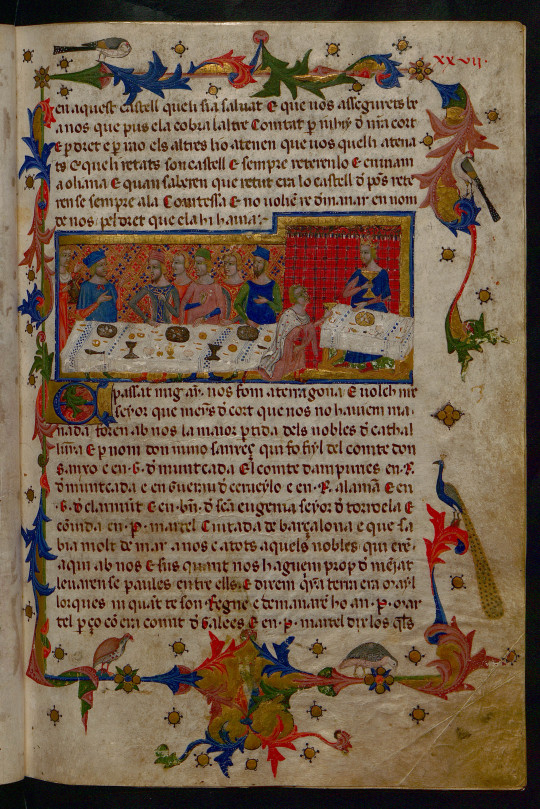 xxvij.
en aquest castell quell sia saluat E que uos assegurets be
a nos que pus ela cobra laltre Comtat p nuyl d nra cort
E p dret e p mo els altres ho atenen que uos quelli atena
ts E queli retats son castell E sempre reterenlo E en nom
a oliana E quan saberen que retut era lo castell d pos rete
ren se sempre ala Comtessa E no uolgre demanar en nom
de nos pel dret que ela hi hauia
E passat mig any nos fom a terragona E uolch nre
seyor que menys d cort que nos no hauiem ma
nada foren ab nos la maior ptida dels nobles d cathal
luya E p nom don nuno sanxeç qui fo fiyl del comte don
sanxo e en .G. d muntcada El comte dampuries en .R.
d muntcada e en Guerau d cerueylo e en .R. alama E en
.G. d claramut E en bn d sca eugenia seyor d torroela E
couida en .P. martel Ciutada de barçalona e que sa
bia molt de mar a nos e a tots aquels nobles qui eren
aqui ab nos E sus quant nos haguem prop d meniat
leuaren se paules entre ells E dixeren qna terra era mayl
lorques ni quant te son Regne e demanaren ho an .P. mar
tel p ço co era comit d Galees E en .P. martel dix los qls